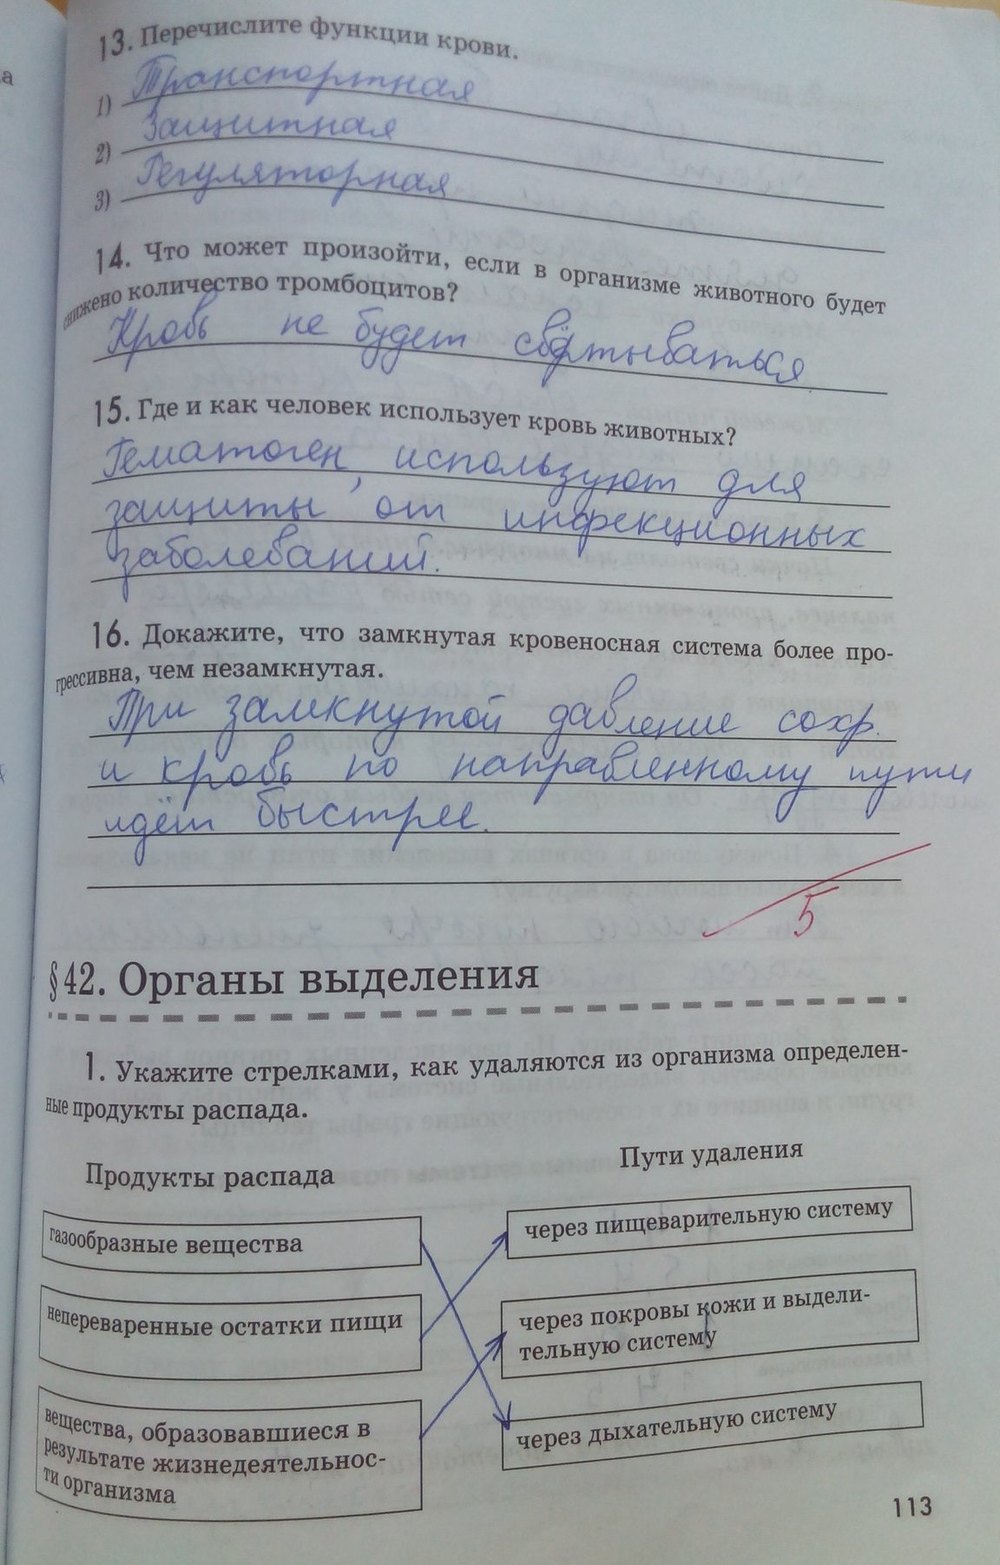 13. Перечислите функции крови.
1) Транспортная
2) Защитная
3) Регуляторная
14. Что может произойти, если в организме животного будет
снижено количество тромбоцитов?
Кровь не будет свёртываться
15. Где и как человек использует кровь животных?
Гематоген, используют для
защиты от инфекционных
заболеваний.
16. Докажите, что замкнутая кровеносная система более про-
грессивна, чем незамкнутая.
При замкнутой давление сохр.
и кровь по направленному пути
идёт быстрее.
5
§ 42. Органы выделения
1. Укажите стрелками, как удаляются из организма определен-
ные продукты распада.
Продукты распада
Пути удаления
газообразные вещества
через пищеварительную систему
непереваренные остатки пищи
через покровы кожи и выдели-
тельную систему
вещества, образовавшиеся в
результате жизнедеятельнос-
ти организма
через дыхательную систему
113